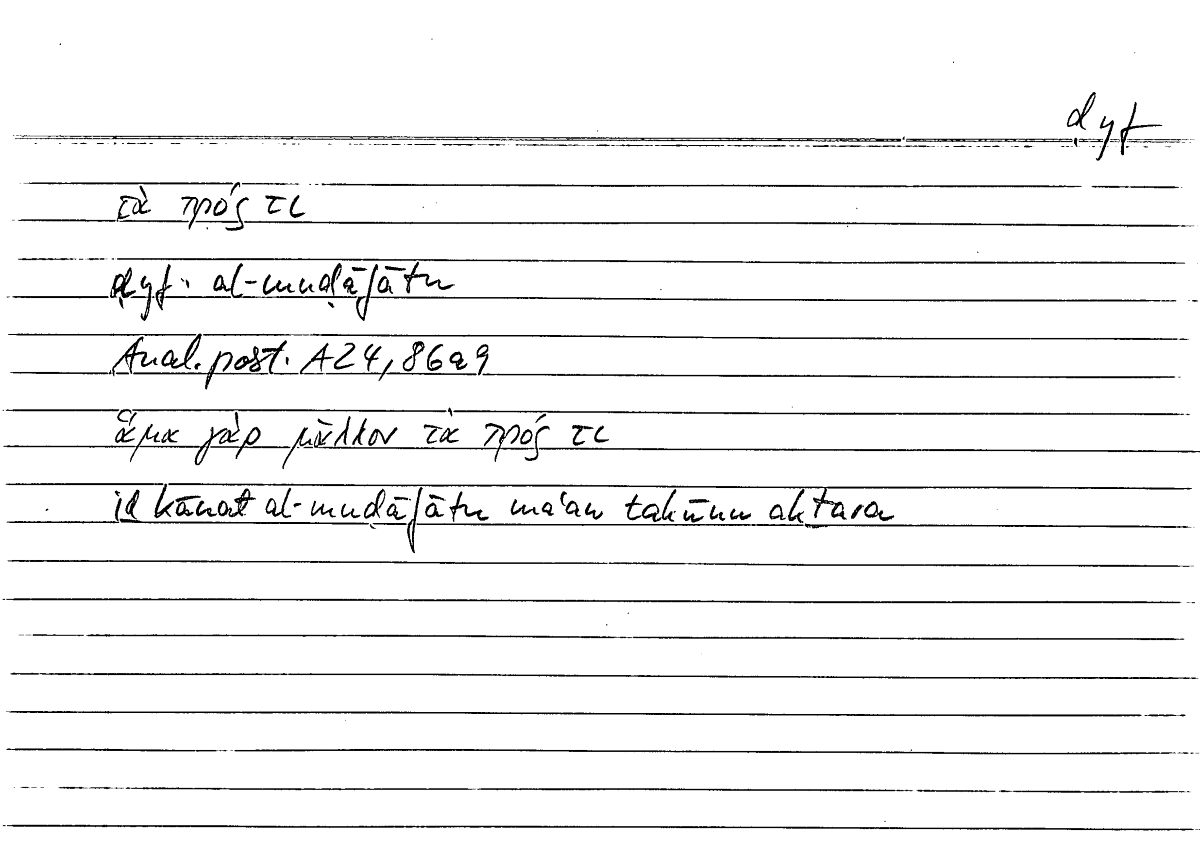 ḍyf
τὰ πρός τι
ḍyf. al-muḍāfātu
Anal. post. A24, 86a9
ἅμα γὰρ μᾶλλον τὰ πρός τι
id kānat al-muḍāfātu ma'an takūnu aktara